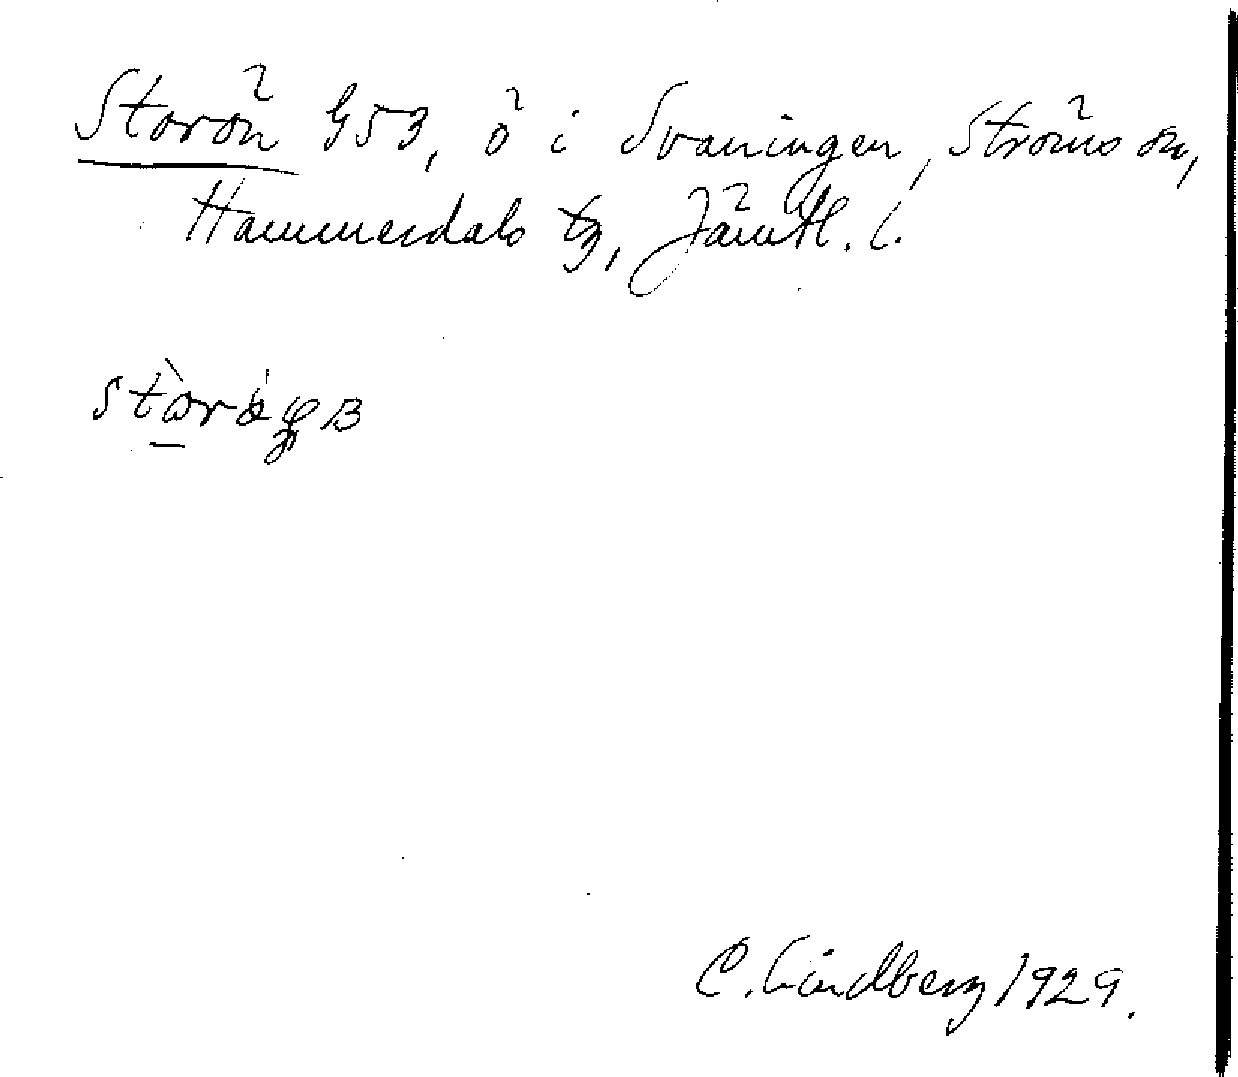 Storön G53, ö i Svaningen, Ströms sn,
Hammerdals tg, Jämtl. l.
C. Lindberg 1929.